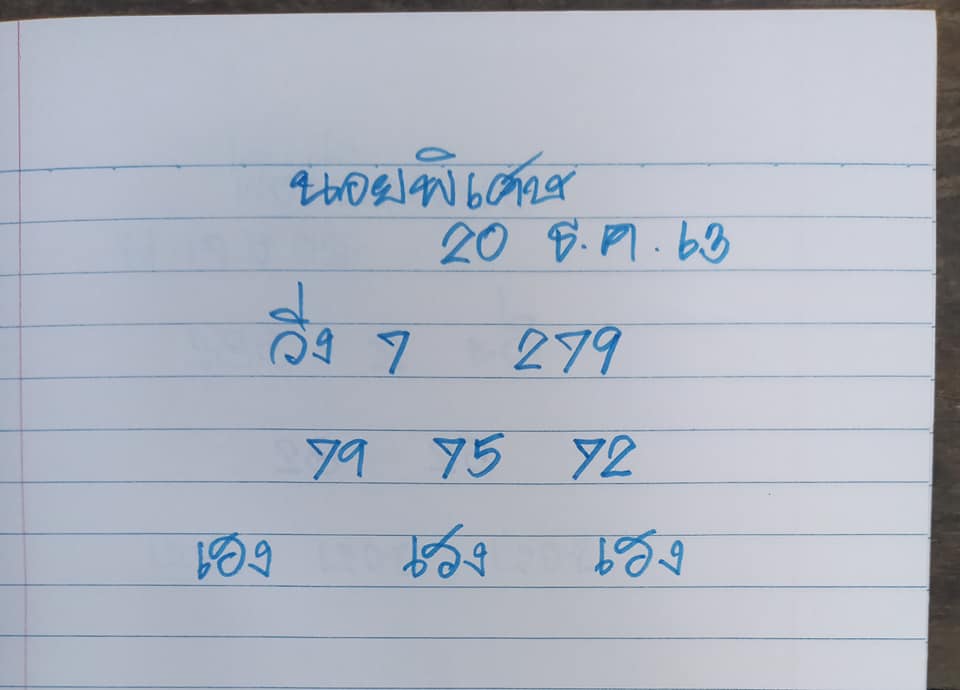 ฮานอยพิเศษ
20 ธ.ค.63
วิ่ง 7 279
79 75 72
เฮง เฮง เฮง